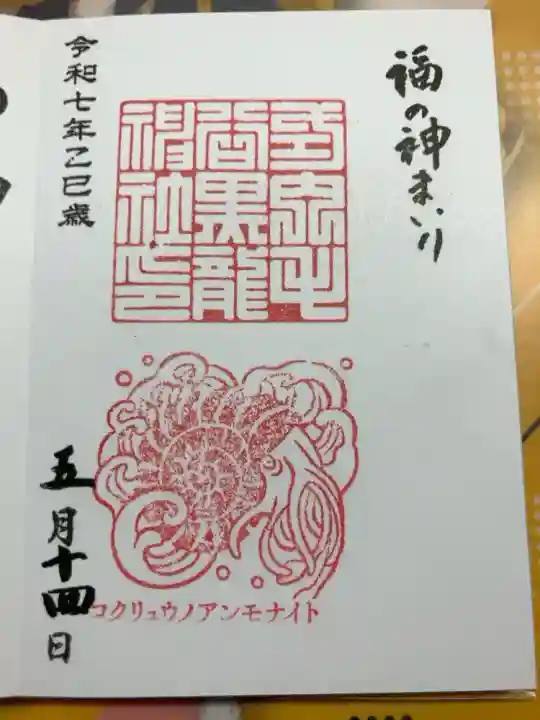 福の神まいり
毛谷黒龍
神社印
令和七年乙巳歳
五月十四日
コクリュウノアンモナイト